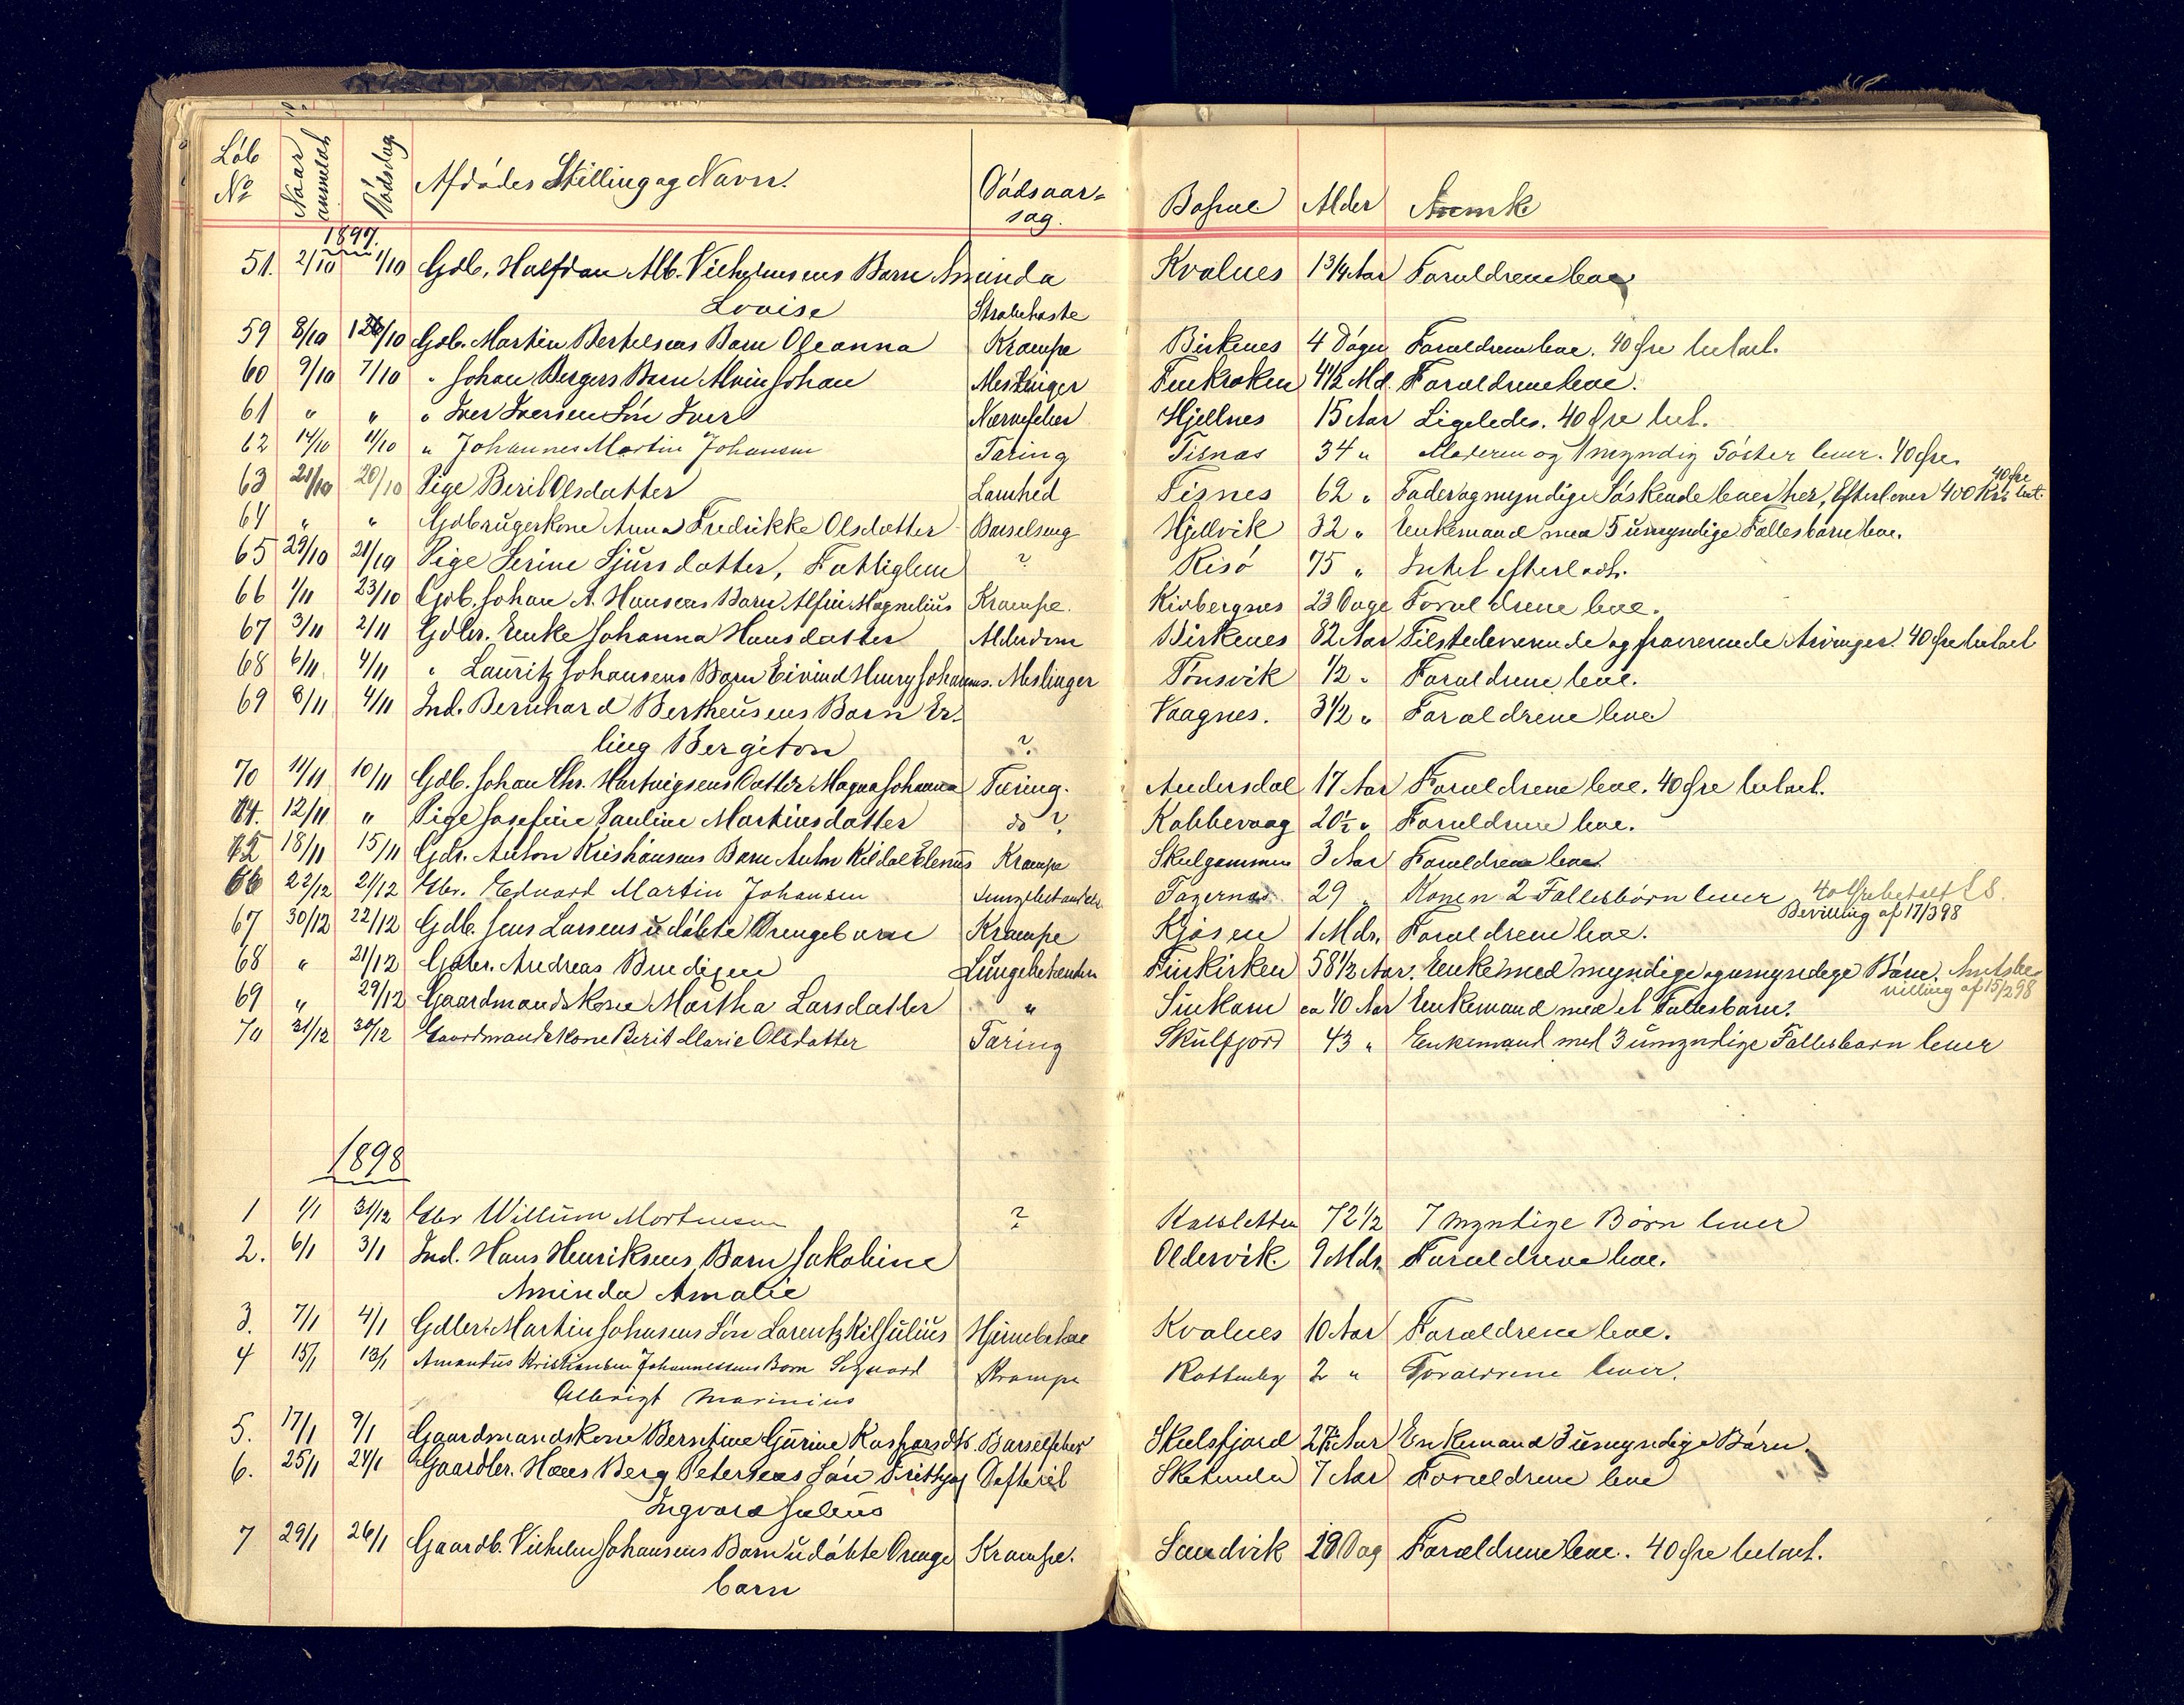 Løb No Naar anmeldt Dødsdag Afdødes Stilling og Navn. Dødsaar= Bopæl Alder Anmk
sag.
1897.
51. 2/10 1/10 Gdb. Halfdan Alb. Vilhelmsens Barn Aminda Kvalnes 1 3/4 Aar Forældrene leve
Lovise Strubehoste
59 8/10 Gdb. Martin Bertelsens Barn Oleanna Krampe Birkenes 4 Døgn Forældrene leve. 40 Øre betalt.
60 9/10 7/10 " Johan Bergers Barn Alvin Johan Meslinger Finkroken 4 1/2 Md. Forældrene leve.
61 " " " Iver Iversen Søn Iver Nervefeber Hjellnes 15 Aar Ligeledes. 40 Øre bet.
62 14/10 11/10 " Johannes Martin Johansen Tæring Tisnæs 34 " Moderen og 1 myndig Søster lever. 40 Øre
63 21/10 20/10 Pige Berit Olsdatter Lamhed Tisnes 62 " Fader og myndige Søskende lever her, Efterlever 400 Kr. 40 Øre bet.
64 " " Gdbrugerkone Anna Fredrikke Olsdatter Barselseng Hjellvik 32 " Enkemand med 5 umyndige Fællesbørn leve.
65 29/10 21/10 Pige Serine Sjursdatter, Fattiglem ? Risø 75 " Intet efterladt.
66 1/11 23/10 Gdb. Johan A. Hansens Barn Alfin Magnelius Krampe. Kivbergnes 23 Dage Forældrene leve.
67 3/11 2/11 Gdbr. Enke Johanna Hansdatter Alderdom Birkenes 82 Aar Tilstedeværende og fraværende Arvinger. 40 Øre betalt
68 6/11 4/11 " Lauritz Johansens Barn Eivind Henry Johannes. Meslinger Tønsvik 1/2 " Forældrene leve.
69 8/11 4/11 Ind. Bernhard Bertheusens Barn Er-
Vaagnes. 3 1/2 " Forældrene leve
ling Bergiton ?
70 11/11 10/11 Gdb. Johan Chr. Hartvigsens Datter Magna Johanna Tæring. Andersdal 17 Aar Forældrene leve. 40 Øre betalt.
12/11 " Pige Josefine Pauline Martinsdatter do ? Kobbevaag 20 1/2 " Forældrene leve.
18/11 15/11 Gdr. Anton Kristiansens Barn Anton Kildal Elenus Krampe Skulgammen 3 Aar Forældrene leve
66 22/12 21/12 Gbr. Edvard Martin Johansen Lungebetændelse 29 " Konen 2 Fællesbørn lever 40 Øre betalt
Bevilling af 17/3 98
67 30/12 22/12 Gdb. Jens Larsens udøbte Drengebarn Krampe Kjosen 1 Mdr. Forældrene leve.
68 " 21/12 Gdbr. Andreas Bredigen Lungebetænden Finkirken 58 1/2 Aar. Enke med myndige og umyndige Børn. Amtsbe-
villing af 15/2 98
69 " 29/12 Gaardmandskone Martha Larsdatter " Sinkarn ca 40 Aar Enkemand med et Fællesbarn.
70 31/12 30/12 Gaardmandskone Berit Marie Olsdatter Tæring Skulfjord 43 " Enkemand med 3 umyndige Fællesbarn lever
1898
1 1/1 31/12 Gbr Willum Mortensen ? Kalsletten 72 1/2 7 myndige Børn lever
2. 6/1 3/1 Ind. Hans Henriksens Barn Jakobine Oldervik 9 Mdr. Forældrene leve.
Aminda Amalie
3. 7/1 4/1 Gdbr. Martin Johnsens Søn Lorentz Kil Julius Hjernebetæe Kvalnes 10 Aar Forældrene leve.
4 15/1 13/1 Amandus Kristiansen Johannessens Barn Sigvard Krampe 2 " Forældrene lever.
Albrigt Marinius
5. 17/1 9/1 Gaardmandskone Berntine Gurine Kasparsdtr. Barselfeber Skulsfjord 27 1/2 Aar Enkemand 3 umyndige Børn
6. 25/1 24/1 Gaardbr. Hans Berg Petersens Søn Fritthjof Defterit 7 Aar Forældrene leve
Ingvard Julius
7 29/1 26/1 Gaardb. Vilhelm Johansens Barn udøbte Drenge Krampe. Sandvik 19 Dag Forældrene leve. 40 Øre betalt.
barn